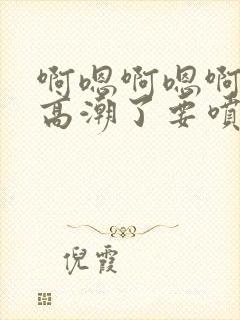 啊嗯啊嗯啊
高潮了要噴
倪霞